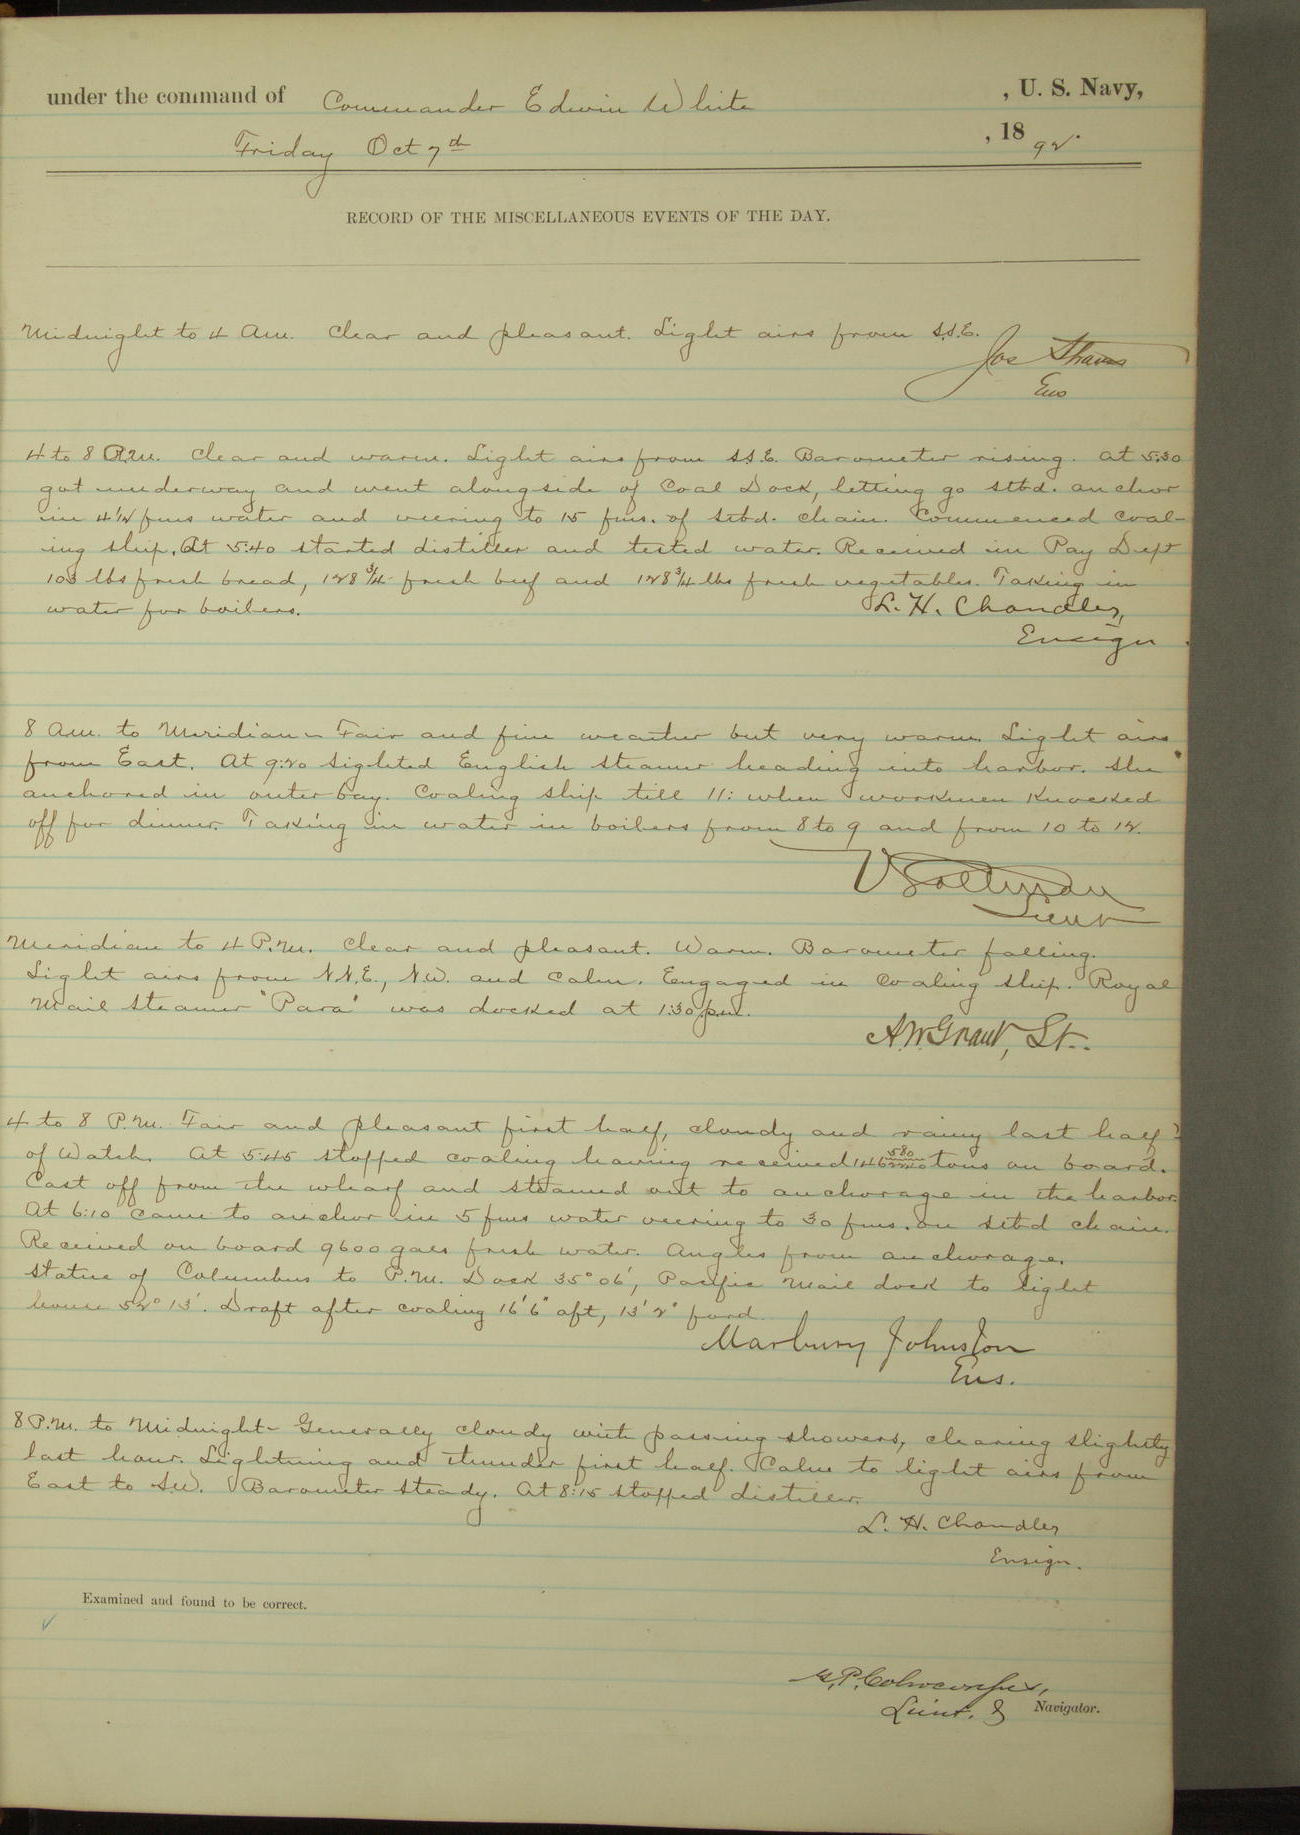 under the command of Commander Edwin White , U. S. Navy,
Friday Oct 7th , 18 92.
RECORD OF THE MISCELLANEOUS EVENTS OF THE DAY.
Midnight to 4 Am. Clear and pleasant. Light airs from S.S.E.
Jos Strauss
Ens
4 to 8 A.M. Clear and warm. Light airs from S.S.E. Barometer rising. At 5:30
got underway and went alongside of Coal Dock, letting go stbd. anchor
in 4 1/2 fms water and veering to 15 fms. of stbd. chain. Commenced coal-
ing ship. At 5:40 started distiller and tested water. Received in Pay Dept
103 lbs fresh bread, 128 3/4 fresh beef and 128 3/4 lbs fresh vegetables. Taking in
water for boilers.
L. H. Chandler,
Ensign
8 Am. to Meridian - Fair and fine weather but very warm. Light airs
from East. At 9:20 sighted English steamer heading into harbor. She
anchored in outer bay. Coaling ship till 11: when workmen knocked
off for dinner. Taking in water in boilers from 8 to 9 and from 10 to 12.
Lieut
Meridian to 4 P.M. Clear and pleasant. Warm. Barometer falling.
Light airs from N.N.E., N.W. and calm. Engaged in coaling ship. Royal
Mail Steamer "Para" was docked at 1:30 p.m.
A.W. Grant, Lt..
4 to 8 P.M. Fair and pleasant first half, cloudy and rainy last half
of Watch. At 5:45 stopped coaling having received 146 580/2240 tons on board.
Cast off from the wharf and steamed out to anchorage in the harbor.
At 6:10 came to anchor in 5 fms water veering to 30 fms. on stbd chain.
Received on board 9600 gals fresh water. Angles from anchorage.
Statue of Columbus to P.M. Dock 35° 06', Pacific Mail dock to light
house 52° 13'. Draft after coaling 16' 6" aft, 13' 2" ford.
Marbury Johnston
Ens.
8 P.M. to Midnight - Generally cloudy with passing showers, clearing slightly
last hour. Lightning and thunder first half. Calm to light airs from
East to S.W. Barometer steady. At 8:15 stopped distiller.
L. H. Chandler
Ensign.
Examined and found to be correct.
G. P. Colvocoresses,
Lieut. & Navigator.